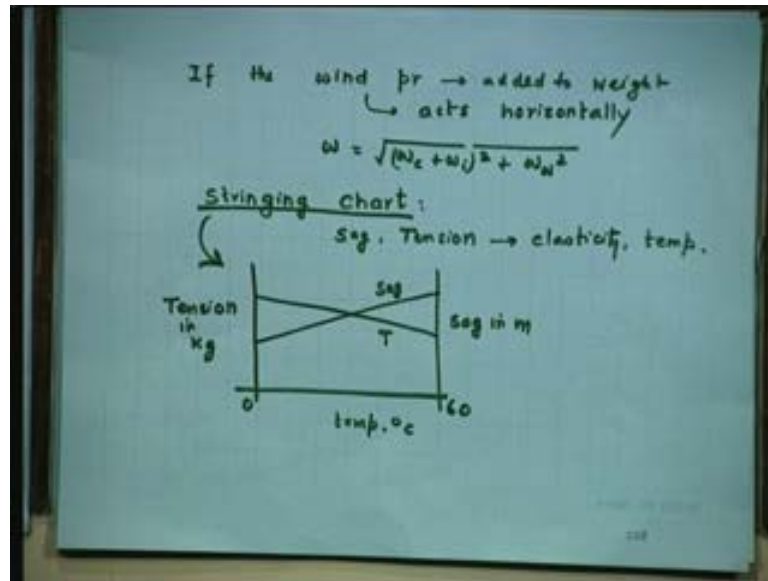 If the wind pr → added to weight
↳ acts horizontally
w = √(wc + wi)² + ww²
Stringing chart:
Sag, Tension → elasticity, temp.
Sag
Tension
in
kg
Sag in m
T
0
60
temp. °c